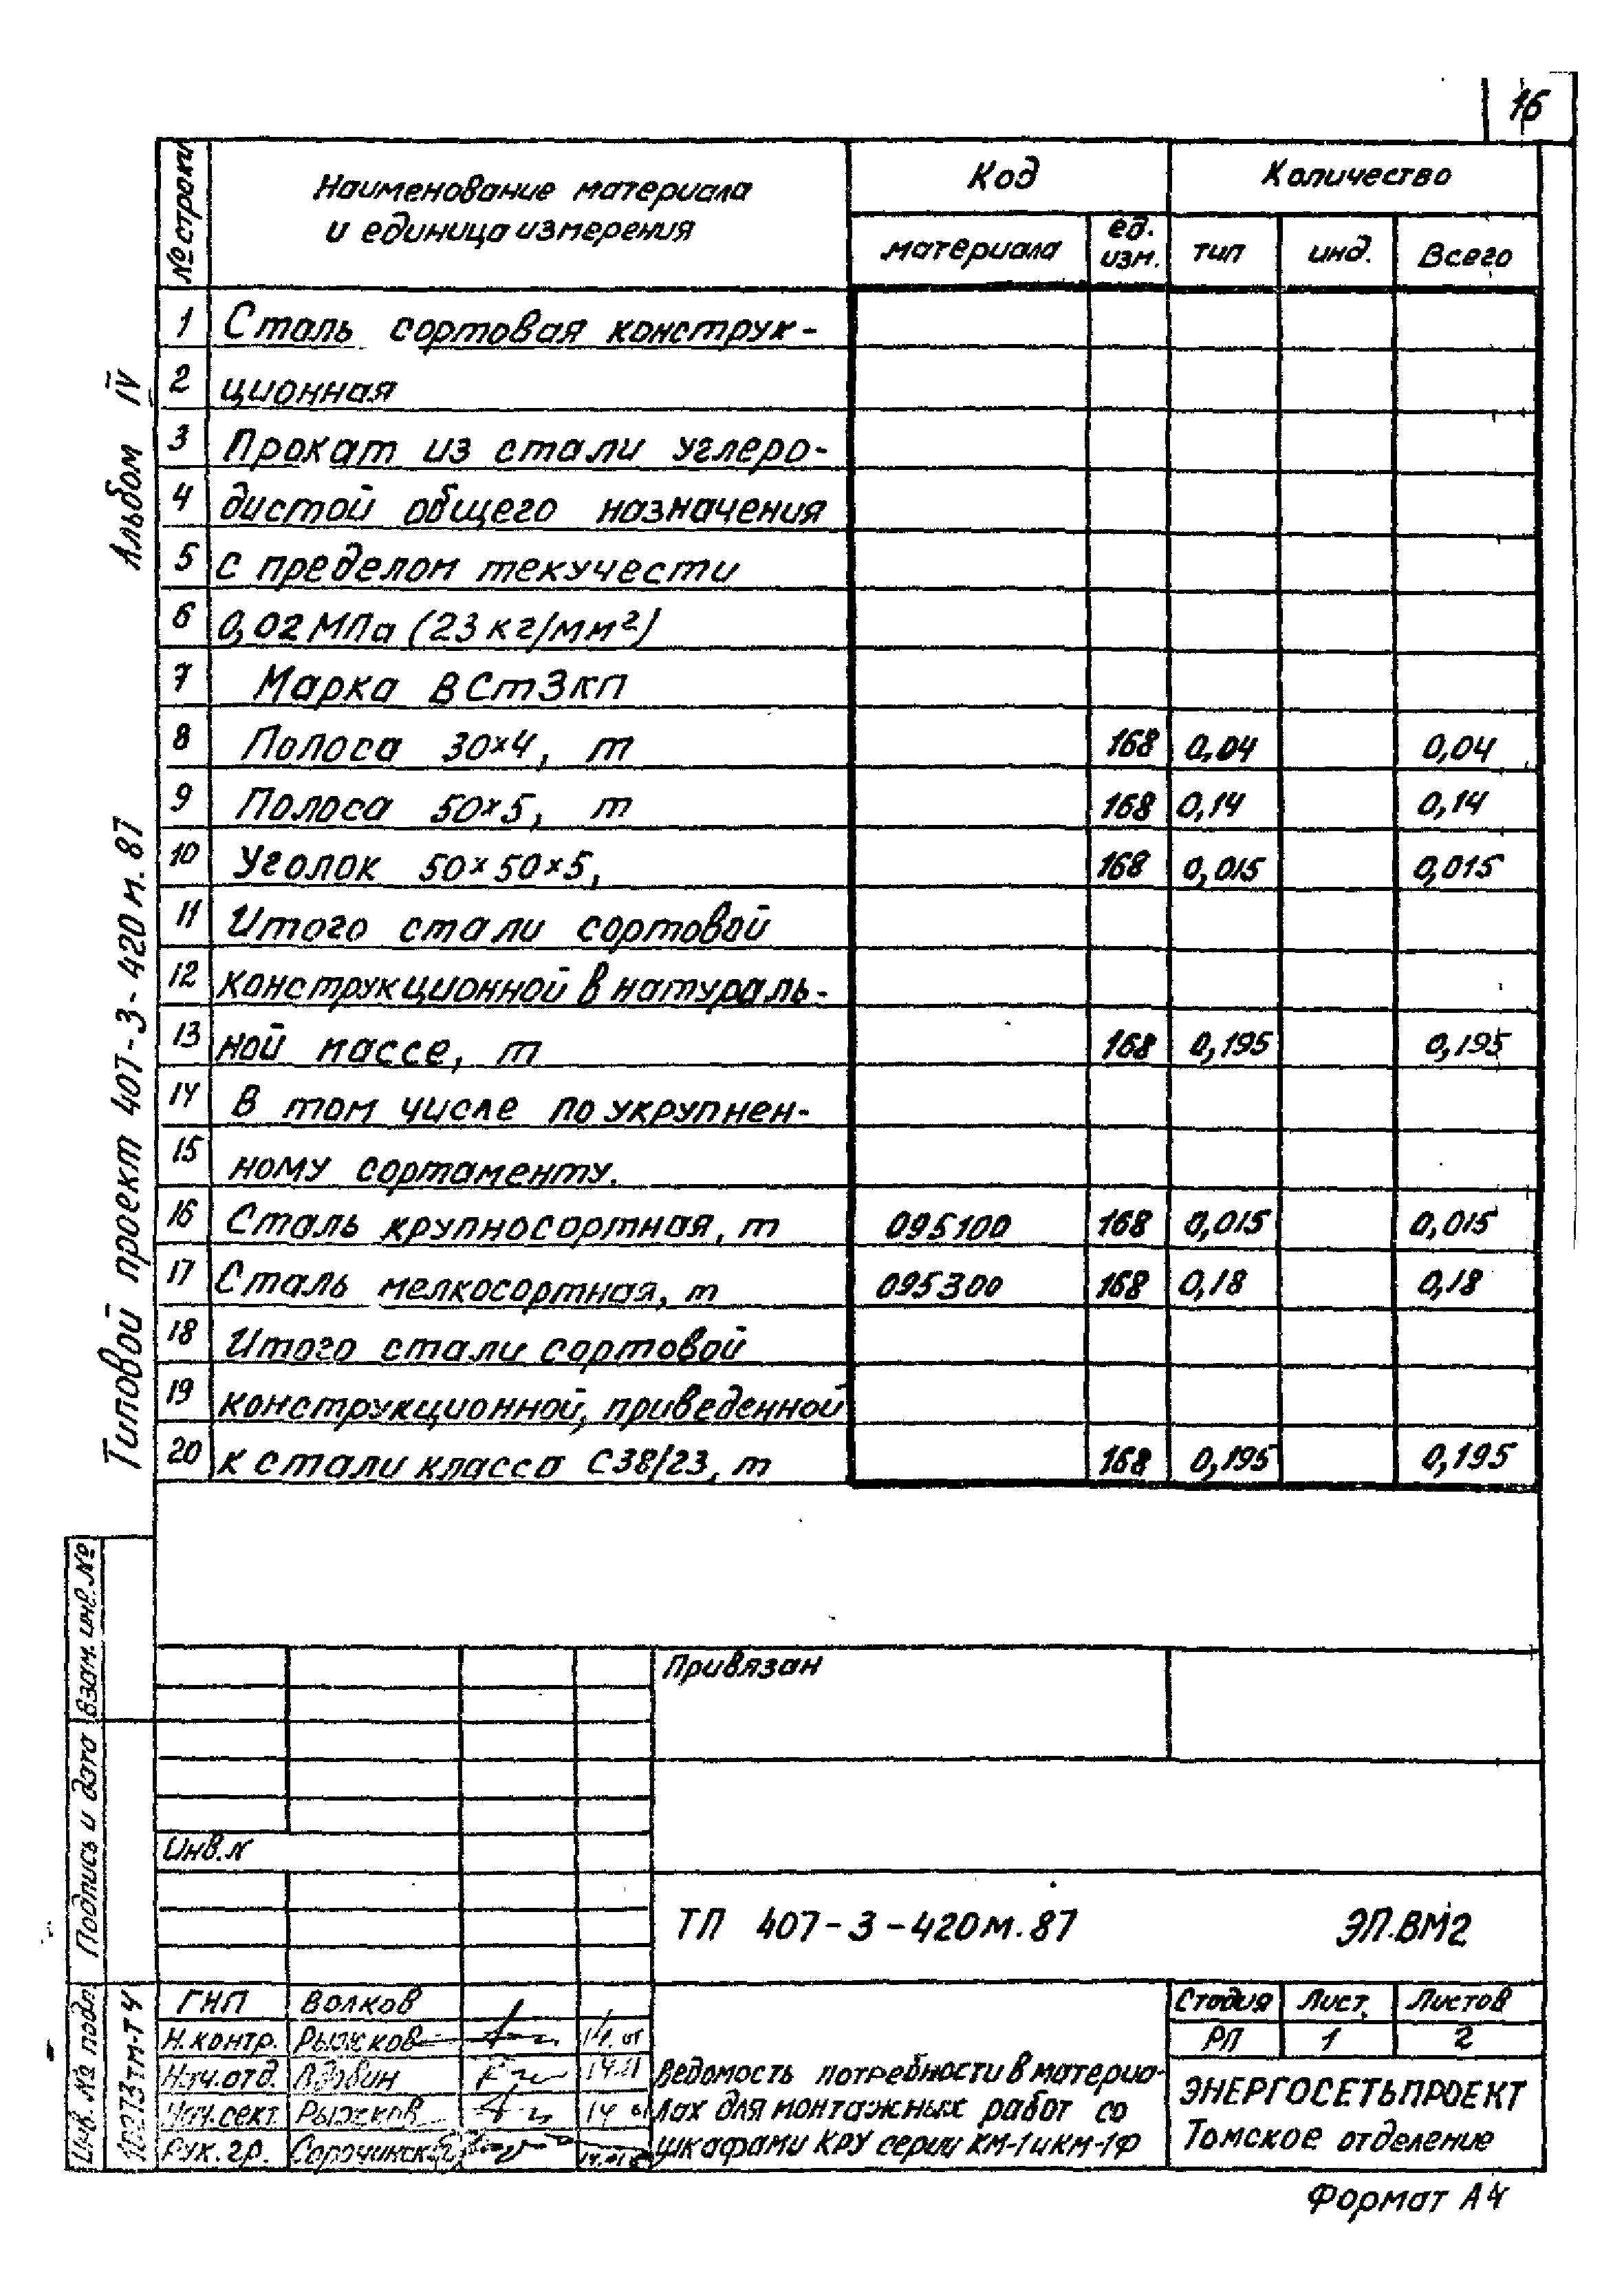 16
№ строки
Наименование материала
и единица измерения
Код
Количество
материала
ед.
изм.
тип
инд.
Всего
1 Сталь сортовая конструк-
2 ционная
3 Прокат из стали углеро-
4 дистой общего назначения
5 с пределом текучести
6 0,02 МПа (23 кг/мм²)
7 Марка ВСт3кп
8 Полоса 30×4, т 168 0,04 0,04
9 Полоса 50×5, т 168 0,14 0,14
10 Уголок 50×50×5, 168 0,015 0,015
11 Итого стали сортовой
12 конструкционной в натураль-
13 ной массе, т 168 0,195 0,195
14 В том числе по укрупнен-
15 ному сортаменту.
16 Сталь крупносортная, т 095100 168 0,015 0,015
17 Сталь мелкосортная, т 095300 168 0,18 0,18
18 Итого стали сортовой
19 конструкционной, приведенной
20 к стали класса С38/23, т 168 0,195 0,195
Альбом IV
Типовой проект 407-3-420м.87
Взам. инв. №
Подпись и дата
Инв. № подл.
10273тм-т4
Привязан
Инв.N
ТП 407-3-420м.87 ЭП.ВМ2
ГНП Волков
Н.контр. Рыжков
Нач.отд. Вдовин 14.01
Нач.сект Рыжков 14.01
Рук.гр.
Ведомость потребности в материа-
лах для монтажных работ со
шкафами КРУ серии КМ-1 и КМ-1Ф
Стадия Лист Листов
РП 1 2
ЭНЕРГОСЕТЬПРОЕКТ
Томское отделение
Формат А4